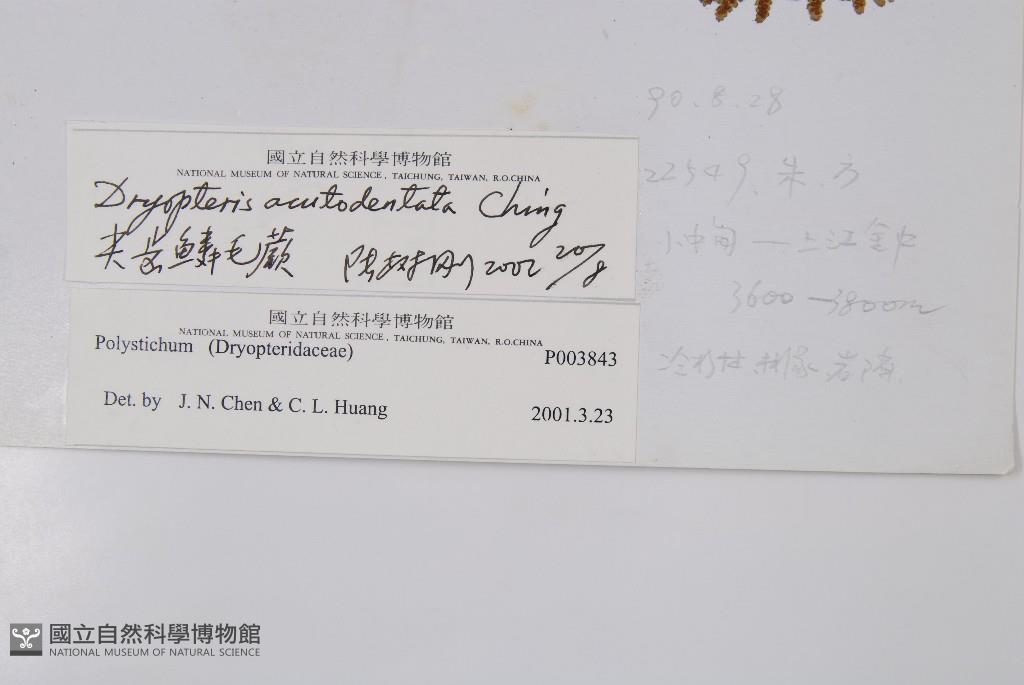 國立自然科學博物館
NATIONAL MUSEUM OF NATURAL SCIENCE, TAICHUNG, TAIWAN, R.O.CHINA
Dryopteris acutodentata Ching
尖齿鱗毛蕨 陆树刚 2002 20/8
國立自然科學博物館
NATIONAL MUSEUM OF NATURAL SCIENCE, TAICHUNG, TAIWAN, R.O.CHINA
Polystichum (Dryopteridaceae) P003843
Det. by J. N. Chen & C. L. Huang 2001.3.23
90.8.28
22549, 朱 方
小中甸—上江
3600—3800m
冷杉林 林缘 岩
國立自然科學博物館
NATIONAL MUSEUM OF NATURAL SCIENCE